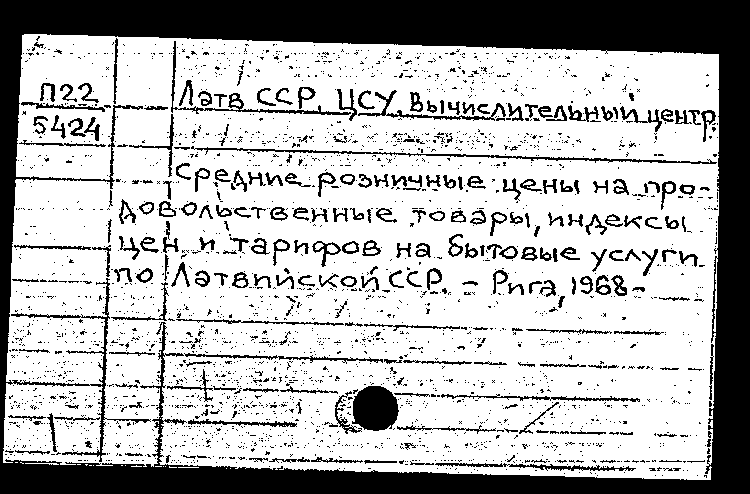 П22
5424
Латв ССР. ЦСУ. Вычислительный центр.
Средние розничные цены на про-
довольственные товары, индексы
цен и тарифов на бытовые услуги
по Латвийской ССР. – Рига, 1968–